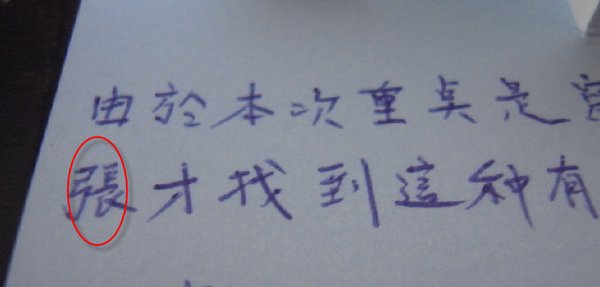 由於本次重点是
張才找到這种有